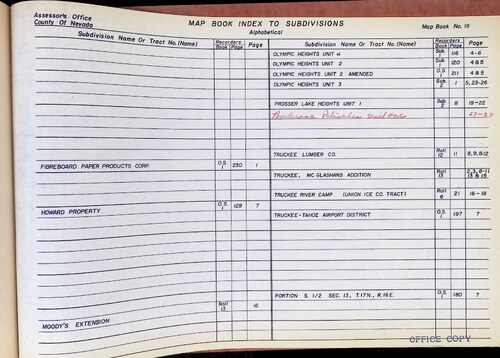 Assessor's Office
County Of Nevada
MAP BOOK INDEX TO SUBDIVISIONS
Alphabetical
Map Book No. 19
Subdivision Name Or Tract No.(Name) Recorders Book Page Page
FIBREBOARD PAPER PRODUCTS CORP. O.S. 1 230 1
HOWARD PROPERTY O.S. 1 129 7
Roll 13 16
MOODY'S EXTENSION
Subdivision Name Or Tract No.(Name) Recorders Book Page Page
OLYMPIC HEIGHTS UNIT #1 Sub. 1 116 4-6
OLYMPIC HEIGHTS UNIT 2 Sub. 1 120 4&5
OLYMPIC HEIGHTS UNIT 2 AMENDED O.S. 1 211 4&5
OLYMPIC HEIGHTS UNIT 3 Sub. 2 1 5,23-26
PROSSER LAKE HEIGHTS UNIT 1 Sub. 2 8 19-22
TRUCKEE LUMBER CO. Roll 12 11 8,9,&12
TRUCKEE, MC GLASHANS ADDITION Roll 13 2,3,8-11 13 & 15
TRUCKEE RIVER CAMP (UNION ICE CO. TRACT) Roll 6 21 16-18
TRUCKEE-TAHOE AIRPORT DISTRICT O.S. 1 197 7
PORTION S. 1/2 SEC. 13, T.17N., R.16E. O.S. 1 180 7
OFFICE COPY